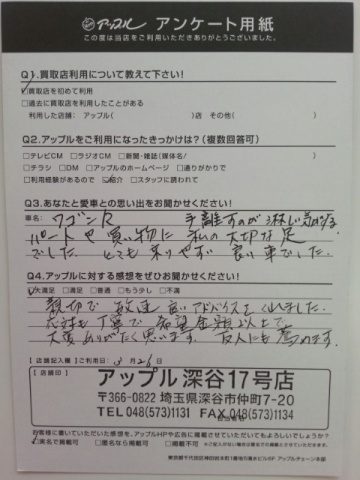 アップル アンケート用紙
この度は当店をご利用いただきありがとうございました。
Q1.買取店利用について教えて下さい!
買取店を初めて利用
□過去に買取店を利用したことがある
利用した店舗: アップル( )店 その他( )
Q2.アップルをご利用になったきっかけは?(複数回答可)
□テレビCM □ラジオCM □新聞・雑誌(媒体名/ )
□チラシ □DM □アップルのホームページ □通りがかりで
□利用経験があるので 紹介 □スタッフに誘われて
Q3.あなたと愛車との思い出をお聞かせください!
車名: ワゴンR 手離すのが淋しい気がする
パートや買い物に 私の大切な足
でした。とても乗りやすく 良い車でした。
Q4.アップルに対する感想をぜひお聞かせください!
大満足 □満足 □普通 □もう少し □不満
親切で 数達 良いアドバイスをくれました。
応対も丁寧で 希望金額以上で
大変ありがたく思います。 友人にも薦めます。
【店舗記入欄】ご利用日: 3月26日
【店舗印】
アップル 深谷17号店
〒366-0822 埼玉県深谷市仲町7-20
TEL 048(573)1131 FAX 048(573)1134
お客様に書いていただいた感想を、アップルHPや広告に掲載させていただいてもよろしいでしょうか?
実名で掲載可 □匿名なら掲載可 □不可
アップルチェーン本部